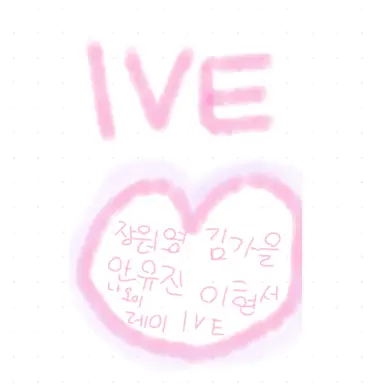 IVE
장원영 김가을
안유진 이현서
나오이
레이 IVE